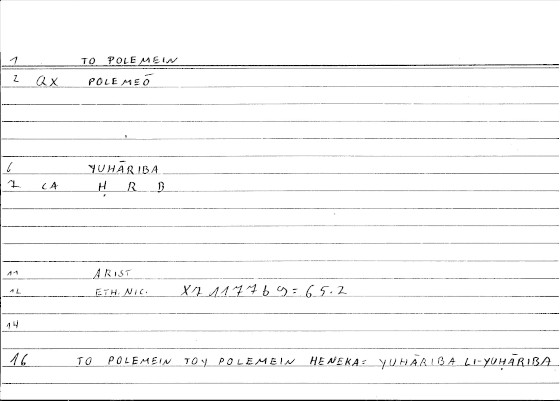 1 TO POLEMEIN
2 QX POLEMEŌ
6 YUHĀRIBA
7 CA Ḥ R B
11 ARIST
12 ETH. NIC. X7 1177b9 = 65.2
14
16 TO POLEMEIN TOY POLEMEIN HENEKA = YUHĀRIBA LI-YUḤĀRIBA